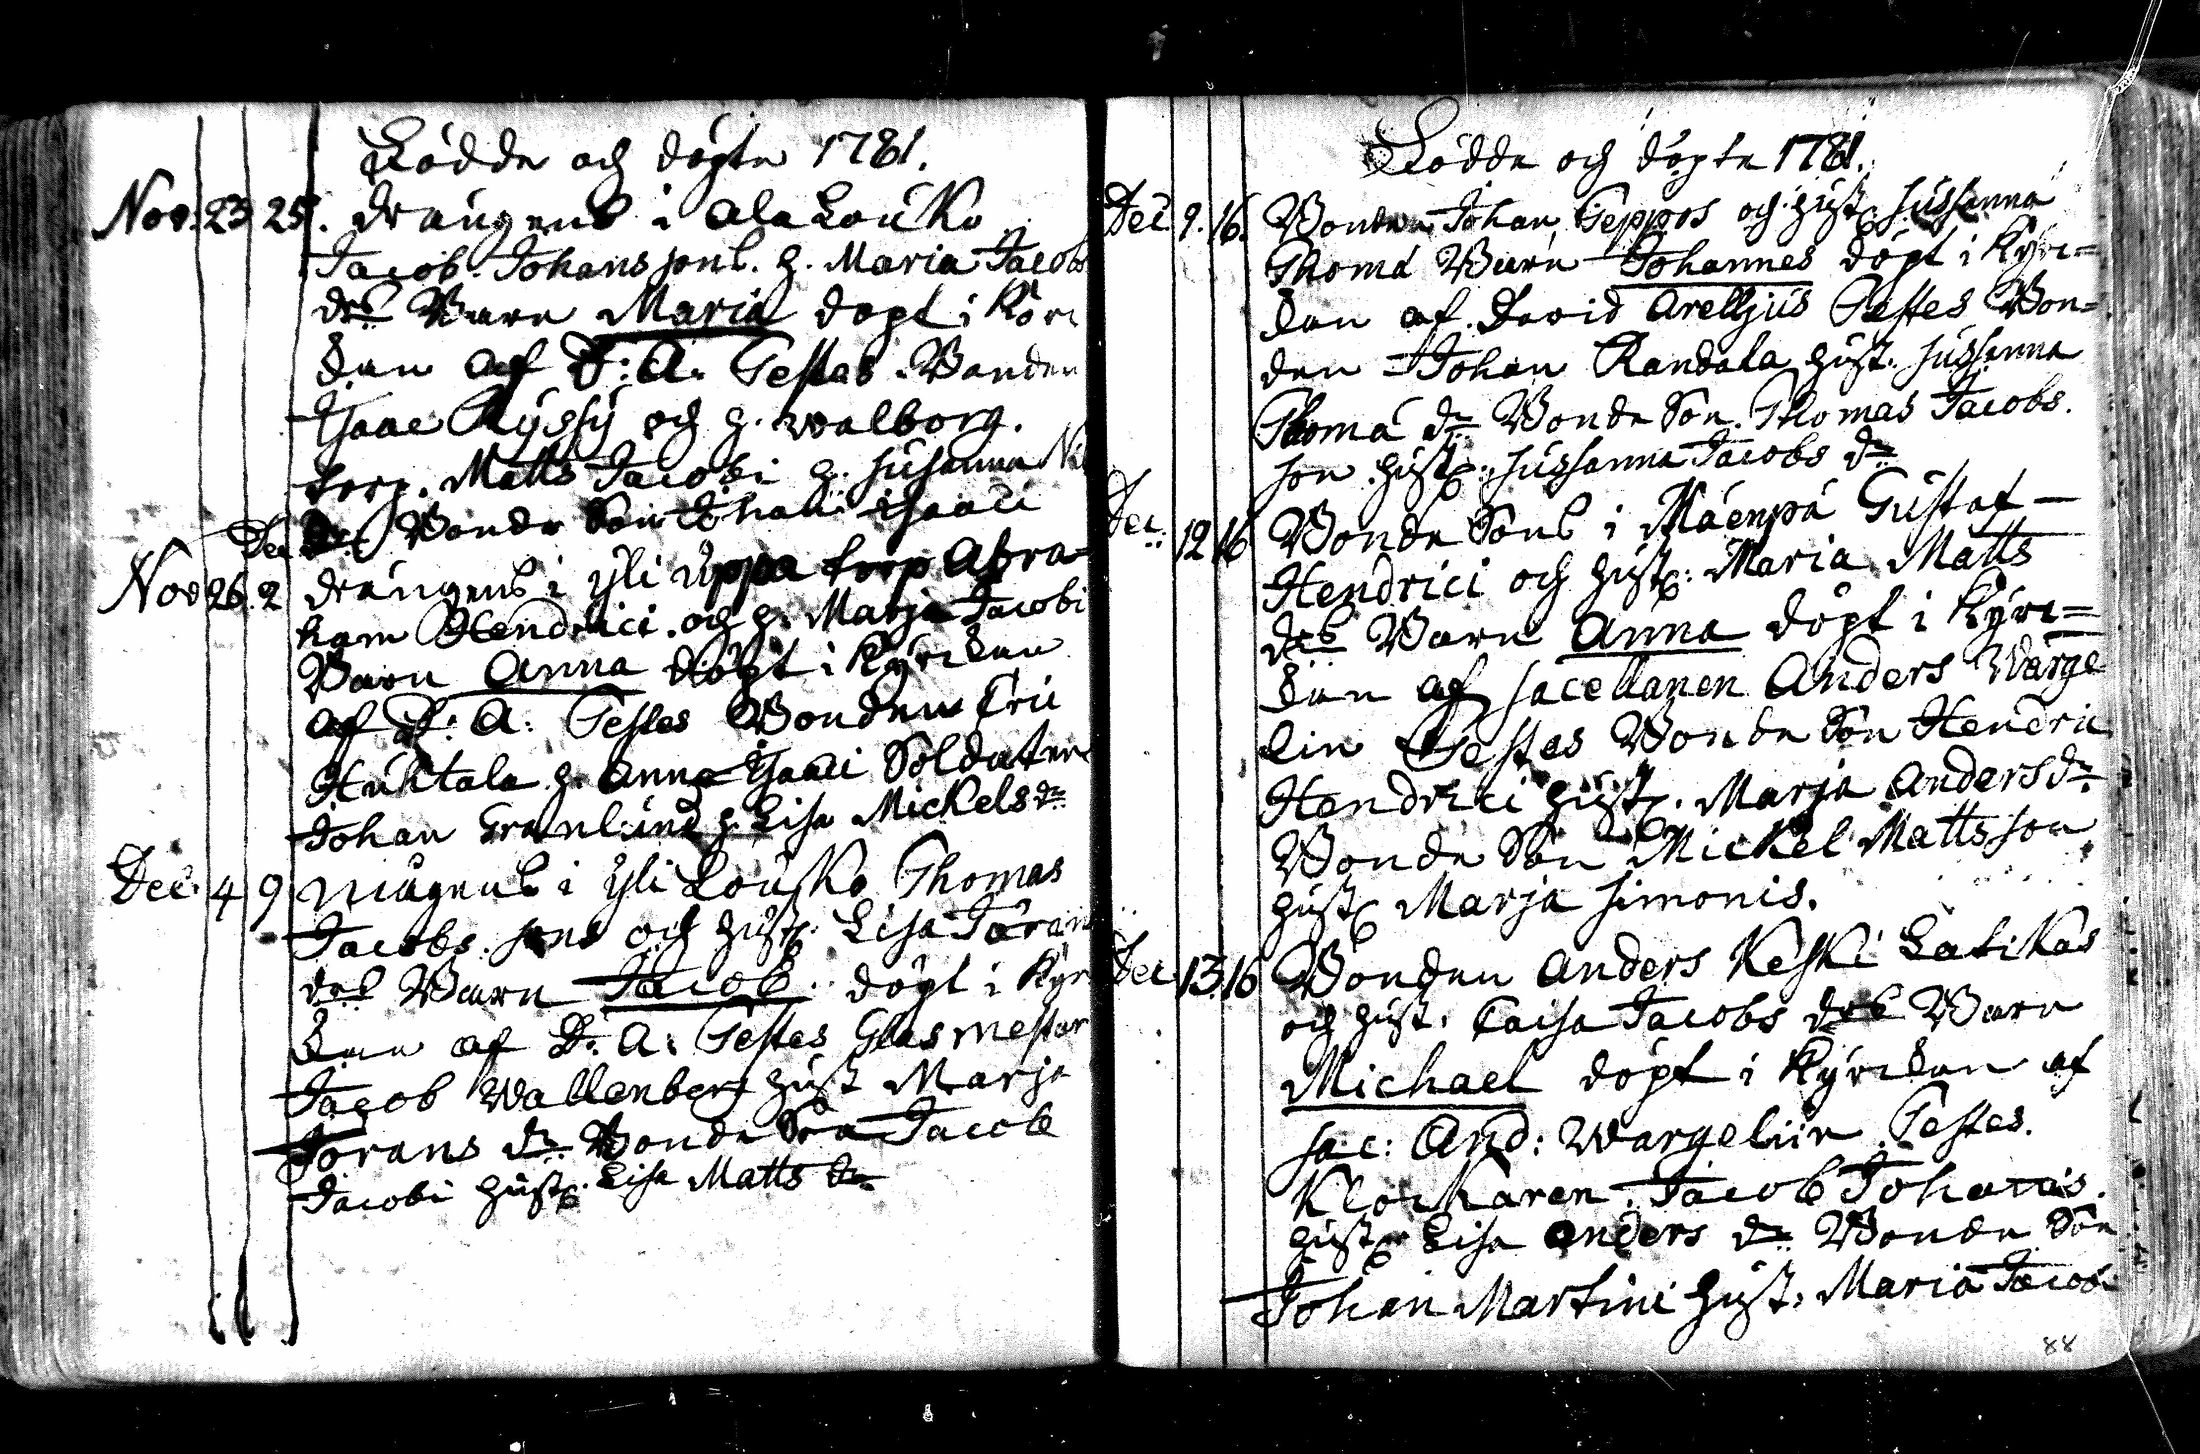 Födde och döpte 1781.
Nov. 23 25. drängens i Ala Louko
Jacob Johanssons. h. Maria Jacobs
drs Barn Maria döpt i Kör
kan af D: A: Testes Bonden
Isaac Ryssy och h. Walborg.
torp. Matts Jacobi h. Susanna
dr Bonde Son Johan Isaaci
Dec
Nov 26. 2 drängens i Yli Uppa torp Abra=
ham Hendrici och h. Marja Jacobi
Barn Anna döpt i Kyrckan
af D: A: Testes Bonden Eric
Huhtala h. Anna Isaaci Soldaten
Johan Granlund h. Lisa Mickels dr
Dec. 4 9 mågens i Yli Louko Thomas
Jacobs sons och hustr. Lisa Jöran
drs Barn Jacob döpt i Kyr
kan af D: A: Testes Glasmestar
Jacob Wallenberg hust Marja
Jörans dr Bonde Son Jacob
Jacobi hustr. Lisa Matts dr
Födde och döpte 1781.
Dec. 9. 16. Bonden Johan Seppos och hust. Sussanna
Thomá Barn Johannes döpt i Kyrc=
kan af David Arelljus Testes Bon=
den Johan Randala hust. Sussanna
Thomá dr Bonde Son Thomas Jacobs.
son hustr: Sussanna Jacobs dr
Dec. 12 16 Bonde Sons i Mäenpä Gustaf
Hendrici och hustr: Maria Matts
drs Barn Anna döpt i Kyrc=
kan af Sacellanen Anders Wárge
lin Testes Bonde Son Hendric
Hendrici hustr. Marja Anders dr
Bonde Son Mickel Mattsson
hustr Marja Simonis.
Dec. 13. 16 Bonden Anders Keski Latikas
och hust. Caisa Jacobs drs Barn
Michael döpt i Kyrckan af
Sac: And: Wargelin Testes.
Klockaren Jacob Johanis.
hustr Lisa Anders dr Bonde Son
Johan Martini hust. Maria Jacob
88